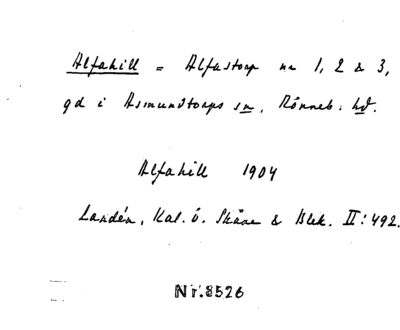 Alfahill = Alfastorp nr 1, 2 & 3,
gd i Asmundtorps sn, Rönneb. hd.
Alfahill 1904
Landén, Kal. ö. Skåne & Blek. II: 492.
Nr.8526